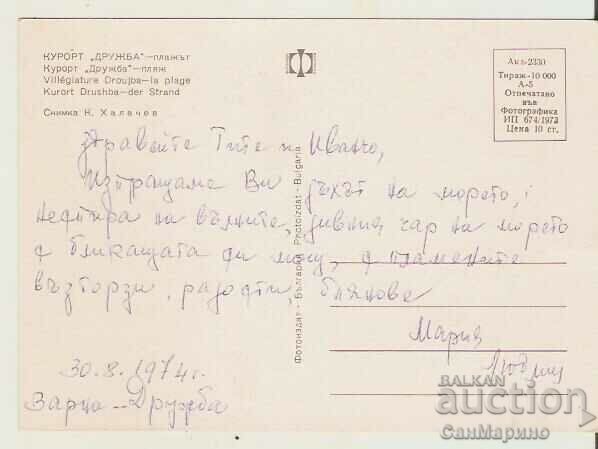 КУРОРТ „ДРУЖБА"—плажът
Курорт „Дружба"—пляж
Villégiature Droujba—la plage
Kurort Drushba—der Strand
Снимка К. Халачев
Акл-2330
Тираж-10 000
А-5
Отпечатано
във
Фотографика
ИП 674/1973
Цена 10 ст.
Фотоиздат - България Photoizdat - Bulgaria
Здравейте Тите и Иванчо,
Изпращаме Ви дъхът на морето,
на вълните, дивния чар на морето
с бликащата си мощ, с пламените
възторзи, радости, блянове
Мария
30.8.1974г.
Варна - Дружба
BALKAN
auction
СанМарино